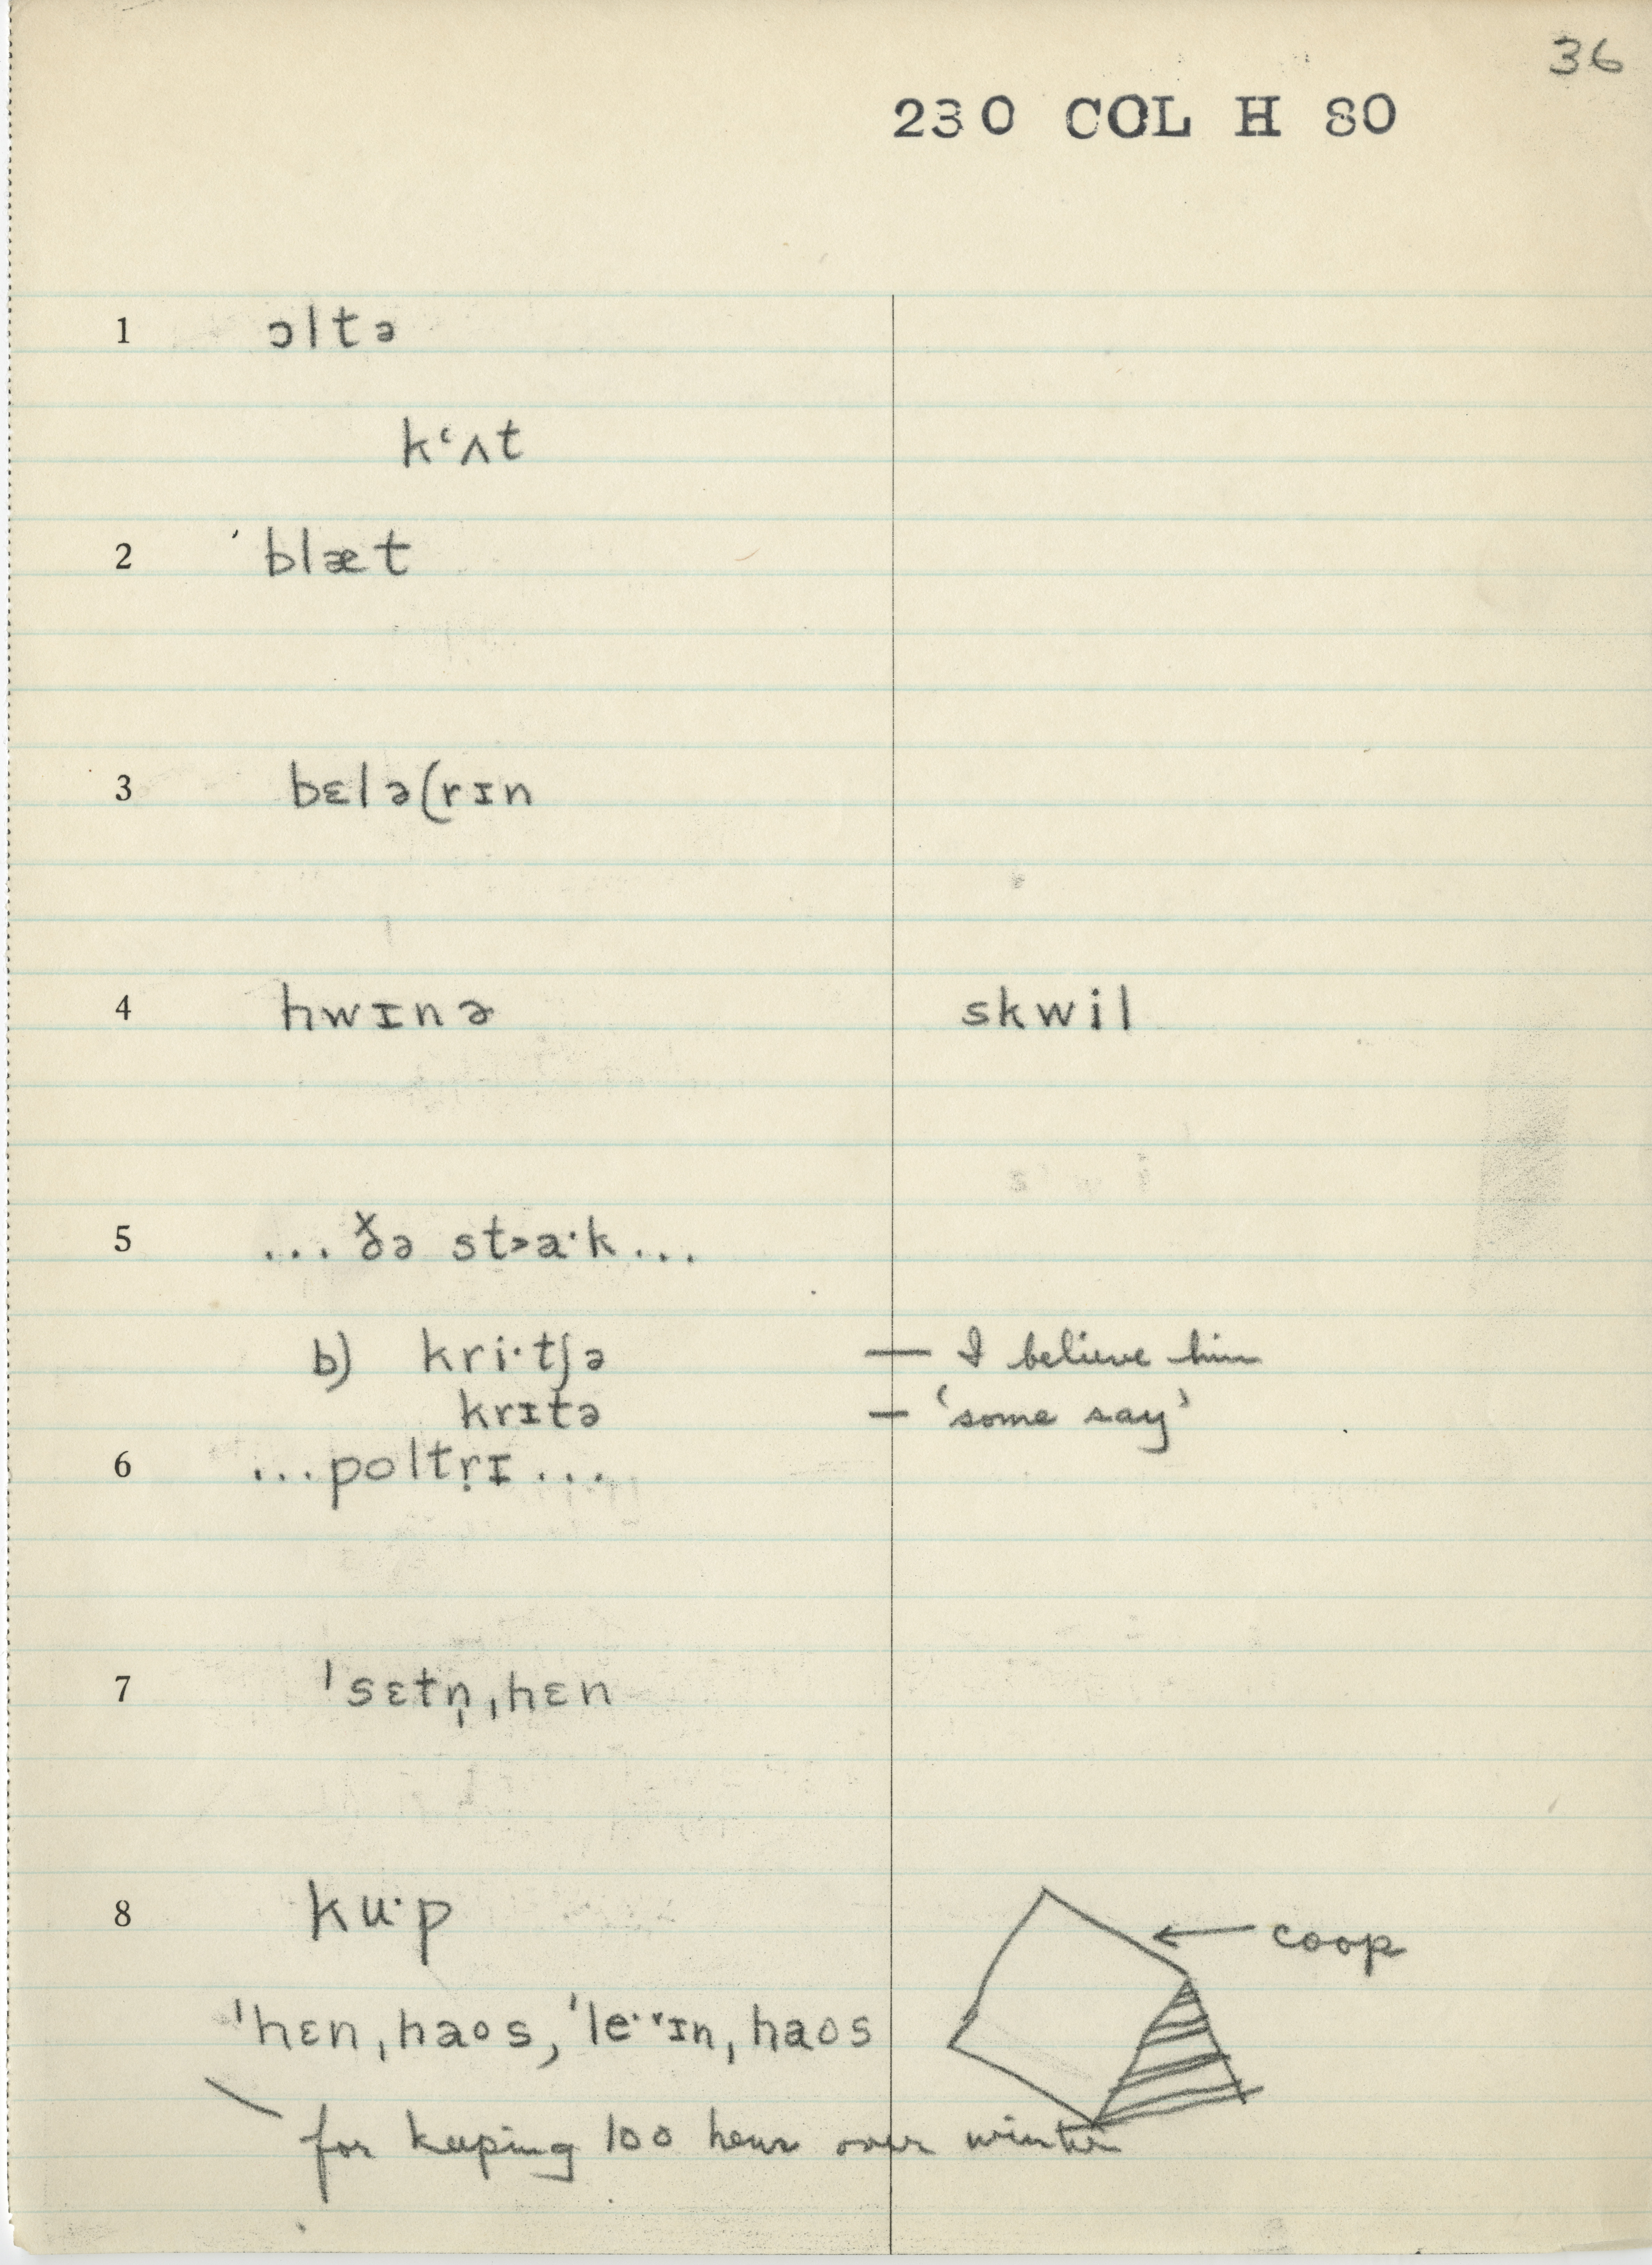 36
230 COL H 80
1 ɔltə
kʻʌt
2 ˈblæt
3 bɛlə(rɪn
4 hwɪnɚ skwil
5 ...ðə st>a·k...
b) kri·tʃə — I believe him
krɪtə — ‘some say’
6 ...poltṛɪ...
7 ˈsɛtn̩ˌhɛn
8 ku·p ← coop
ˈhɛnˌhaos, ˈle·ɪnˌhaos
for keeping 100 hens over winter